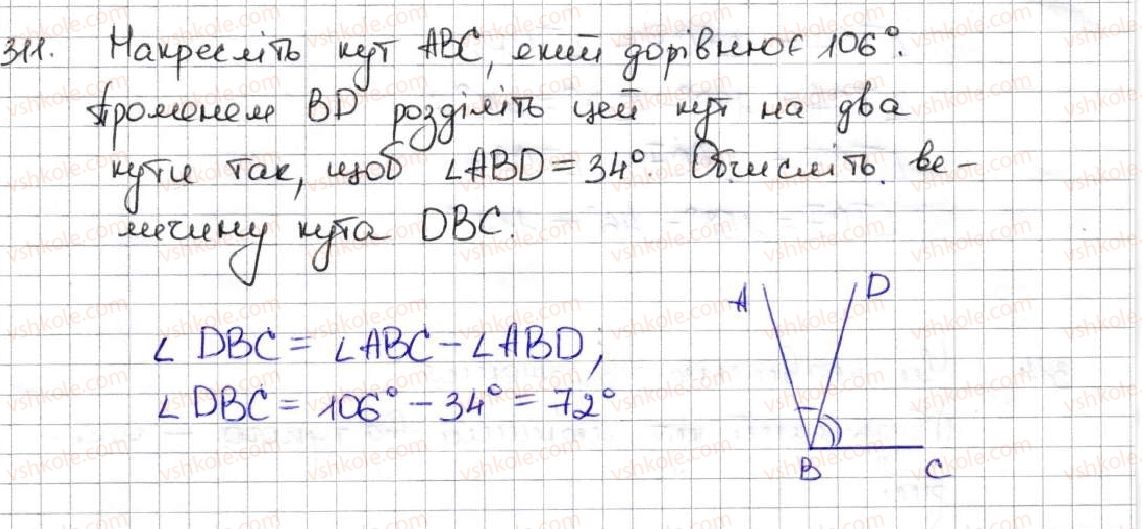 311. Накресліть кут ABC, який дорівнює 106°.
Променем BD розділіть цей кут на два
кути так, щоб ∠ABD = 34°. Обчисліть ве-
личину кута DBC.
A D
∠ DBC = ∠ABC - ∠ABD;
∠ DBC = 106° - 34° = 72°
B C
vshkole.com